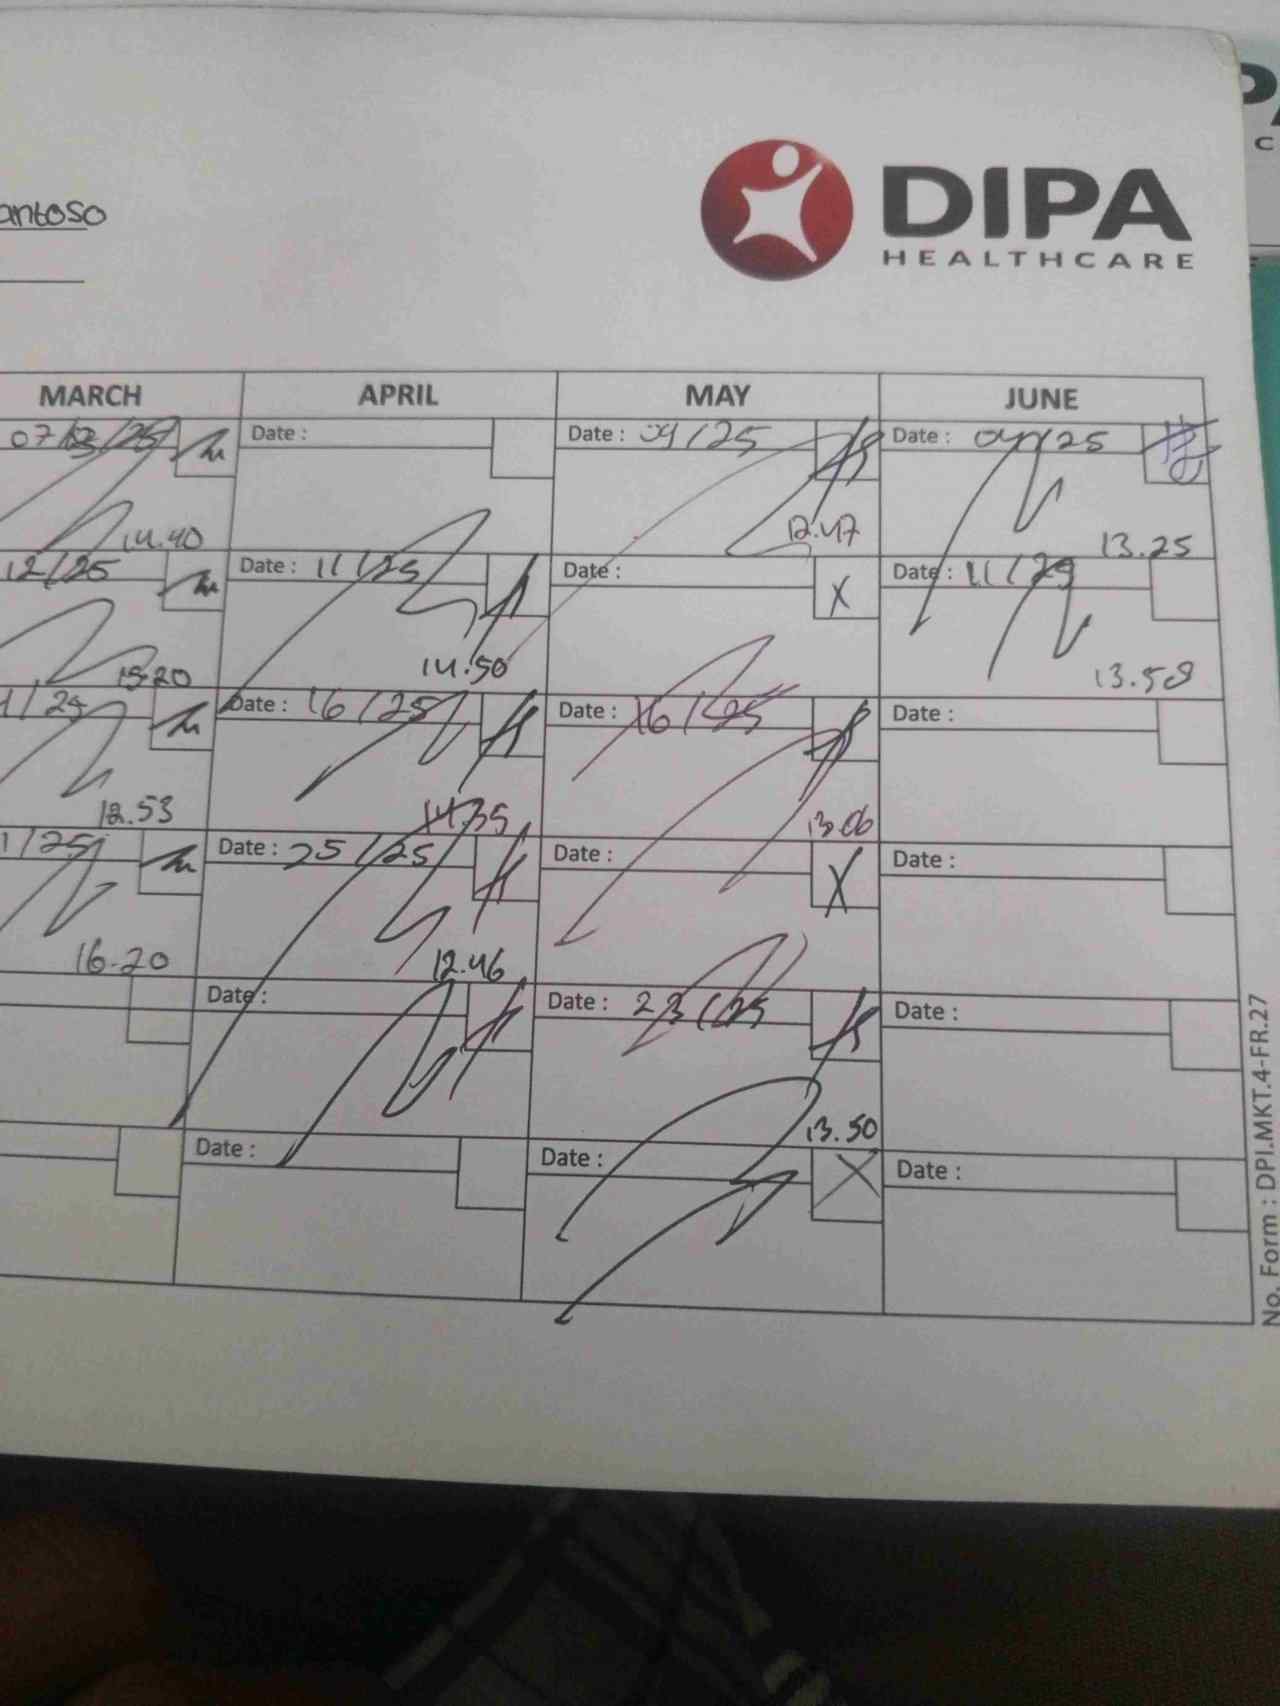 antoso
DIPA
HEALTHCARE
MARCH APRIL MAY JUNE
07/ /25 Date : Date : 09/25 Date : 04/25
14.40 12.47 13.25
12/25 Date : 11/25 Date : X Date : 11/25
15.20 14.50 13.58
1/25 Date : 16/25 Date : 16/25 Date :
12.53 14.35 13.06
1/25 Date : 25/25 Date : X Date :
16.20 12.46
Date : Date : 23/25 Date :
13.50
Date : Date : X Date :
No. Form : DPI.MKT.4-FR.27